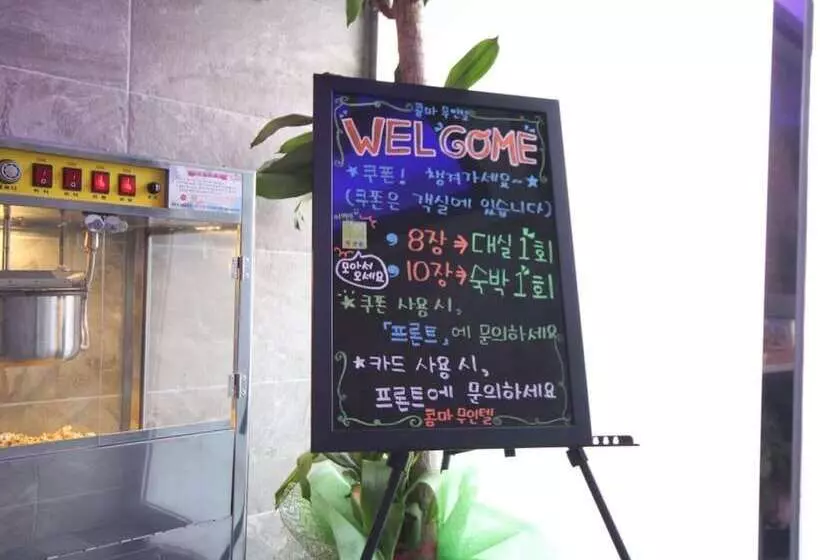 콤마 무인텔
WELCOME
★쿠폰! 챙겨가세요~★
(쿠폰은 객실에 있습니다)
8장 → 대실 1회
모아서
오세요
10장 → 숙박 1회
★쿠폰 사용시,
「프론트」에 문의하세요
★카드 사용시,
프론트에 문의하세요
콤마 무인텔